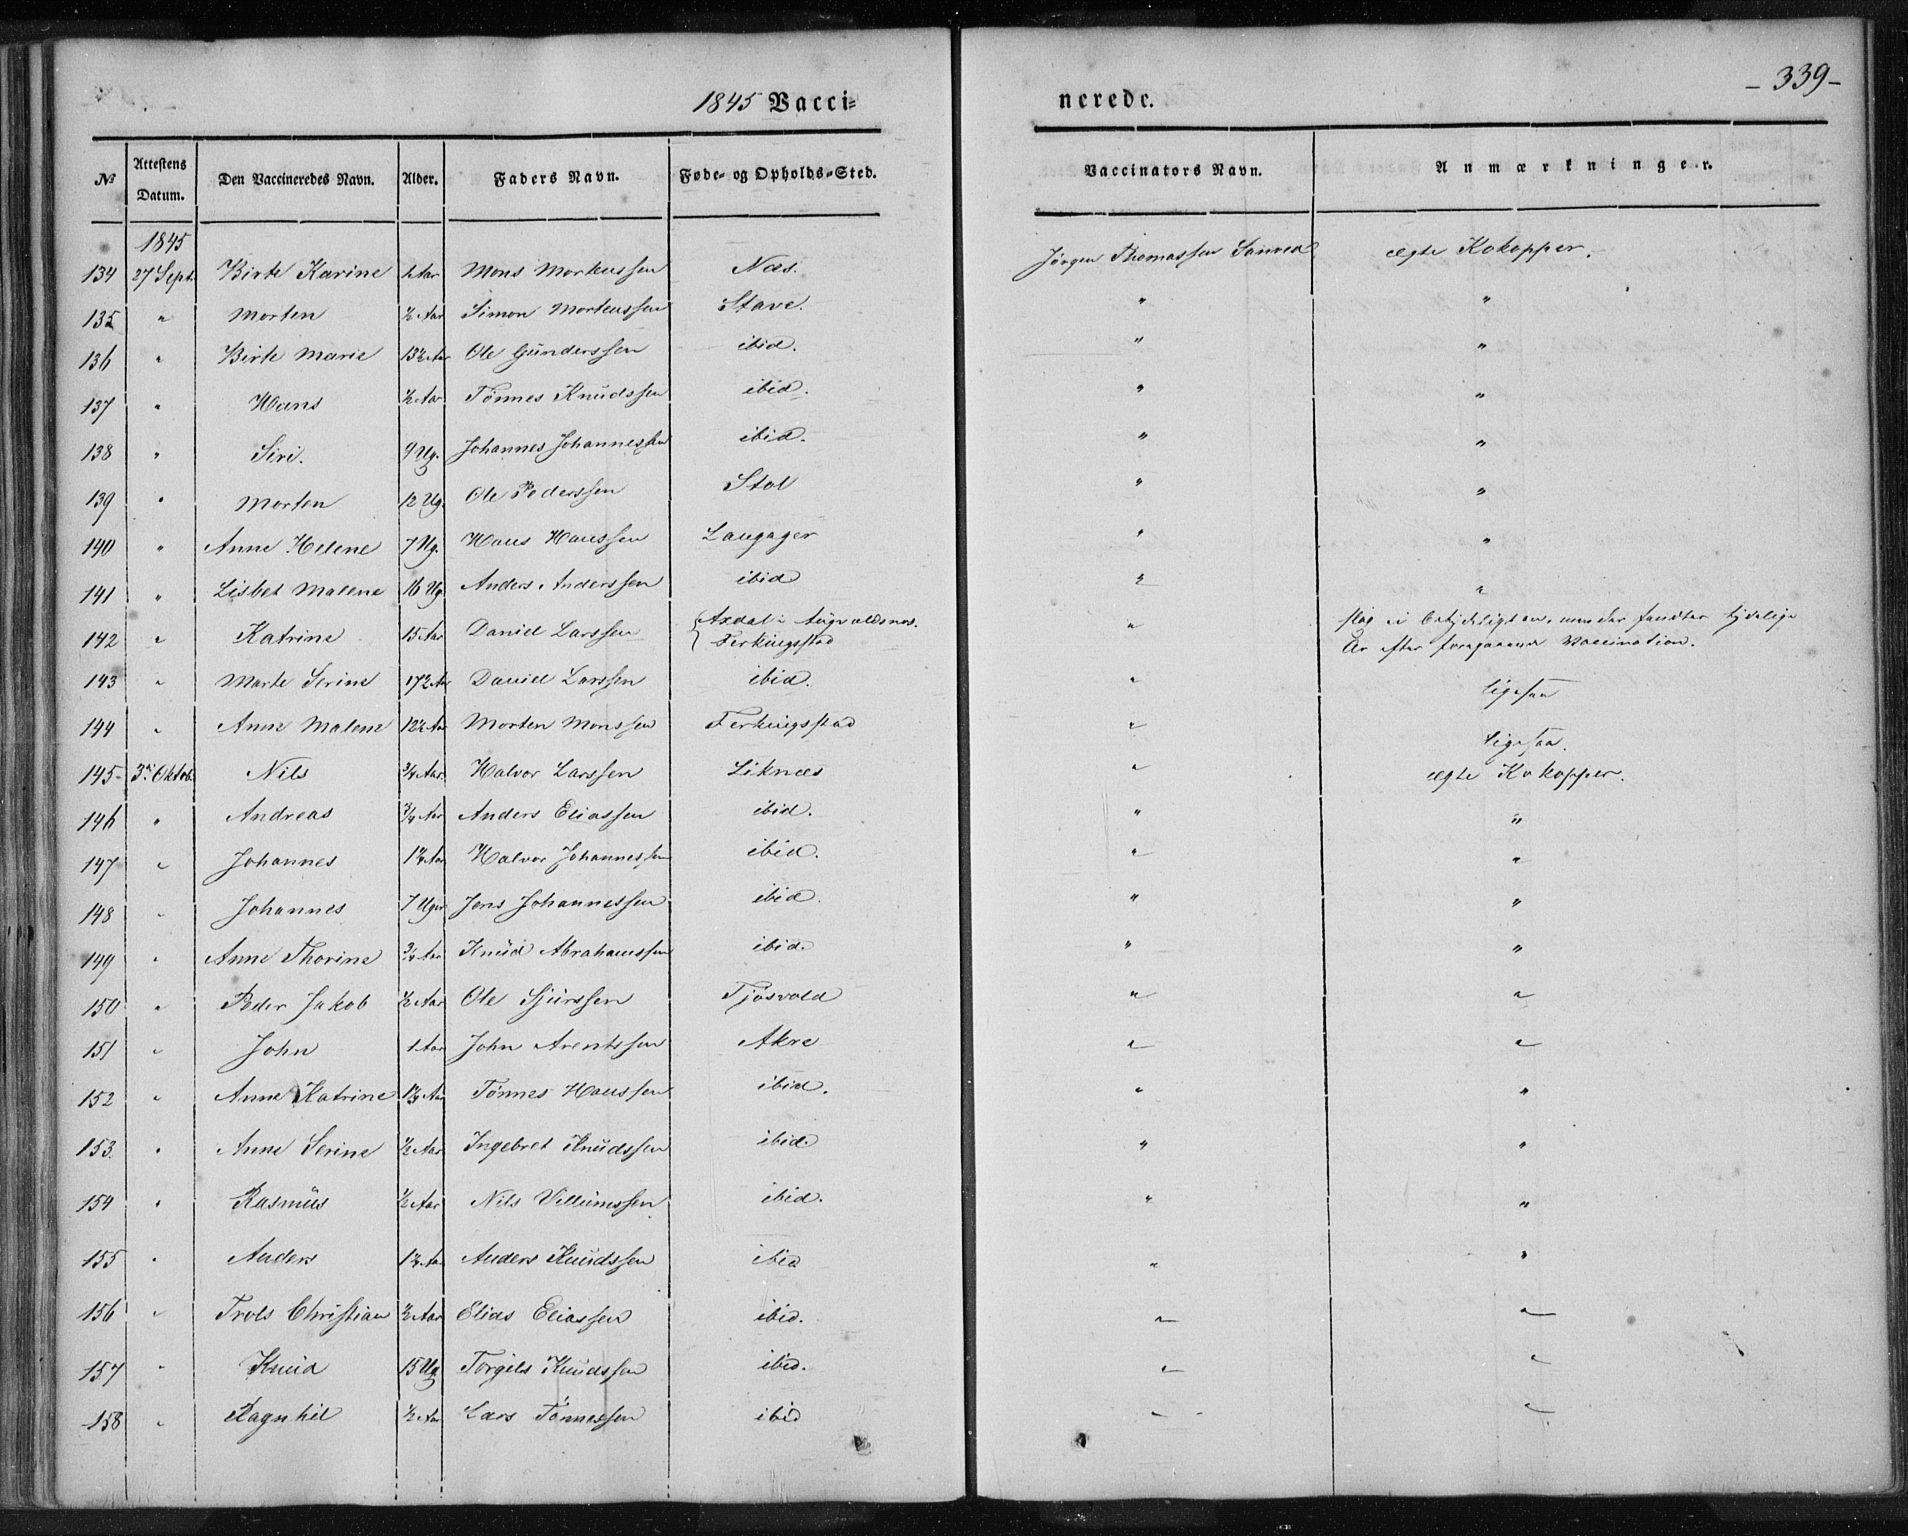 1845 Vacci=
nerede.
- 339 -
№ Attestens Datum. Den Vaccineredes Navn. Alder. Faders Navn. Føde- og Opholds-Sted. Vaccinators Navn. Anmærkninger.
1845
134 27 Sept. Birte Karine 1 Aar Mons Mortenssen Næs. Jørgen Thomassen ægte Kokopper.
135 " Morten ½ Aar Simon Mortenssen Stave. " "
136 " Birte Marie 13½ Aar Ole Gunderssen ibid. " "
137 " Hans ½ Aar Tönnes Knudssen ibid. " "
138 " Siri. 9 Ug. Johannes Johannessen ibid. " "
139 " Morten 12 Ug. Ole Pederssen Stol " "
140 " Anne Helene 7 Ug. Hans Hanssen Langager " "
141 " Lisbet Malene 16 Ug. Anders Anderssen ibid " "
142 " Katrine 15 Aar Daniel Larssen Axdal i Augvaldsnes. Ferkingstad " slog ei betydeligt an, men der fandtes tydelige
Ar efter foregaaende Vaccination.
143 " Marte Serine 17½ Aar Daniel Larssen ibid. " ligesaa
144 " Anne Malene 12½ Aar Morten Monssen Ferkingstad " ligesaa.
145 3die Oktob. Nils ¾ Aar. Halvor Larssen Liknæs " ægte Kokopper.
146 " Andreas ¾ Aar Anders Eliassen ibid. " "
147 " Johannes 1¼ Aar Halvor Johannessen ibid. " "
148 " Johannes 7 Uger Jens Johannessen ibid. " "
149 " Anne Thorine ¾ Aar Knud Abrahamssen ibid. " "
150 " Peder Jakob ½ Aar Ole Sjurssen Tjösvold " "
151 " John 1 Aar John Arentssen Akre " "
152 " Anne Katrine Aar Tönnes Hanssen ibid. " "
153. " Anne Serine ½ Aar Ingebret Knudssen ibid. " "
154 " Rasmus ½ Aar Nils Villumssen ibid. " "
155 " Anders 1¼ Aar Anders Knudssen ibid " "
156 " Trols Christian ½ Aar Elias Eliassen ibid. " "
157 " Knud 15 Ug Torgils Knudssen ibid. " "
158 " Ragnhil ½ Aar Lars Tönnessen ibid " "